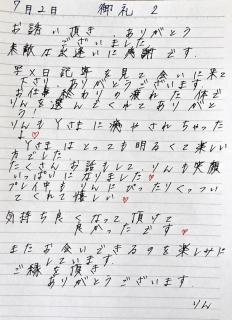 7月2日 御礼 2
お誘い頂き、ありがとう
ございました
素敵な出逢いに感謝です。
写メ日記等を見て会いに来て
下さり、ありがとう
お仕事終わりの疲れた体で
りんを選んでくれてありがと
う
りんもYさまに癒やされちゃった
よ♡
Yさまはとっても明るくて楽しい
方でした
たくさんお話もして、りんも笑顔
いっぱいになりました♡
プレイ中もりんにぴったりくっつい
てくれて嬉しい♡
気持ち良くなって頂けて
良かったです♡
またお会いできるのを楽しみに
しています。
ご縁を頂き
ありがとうございます
りん